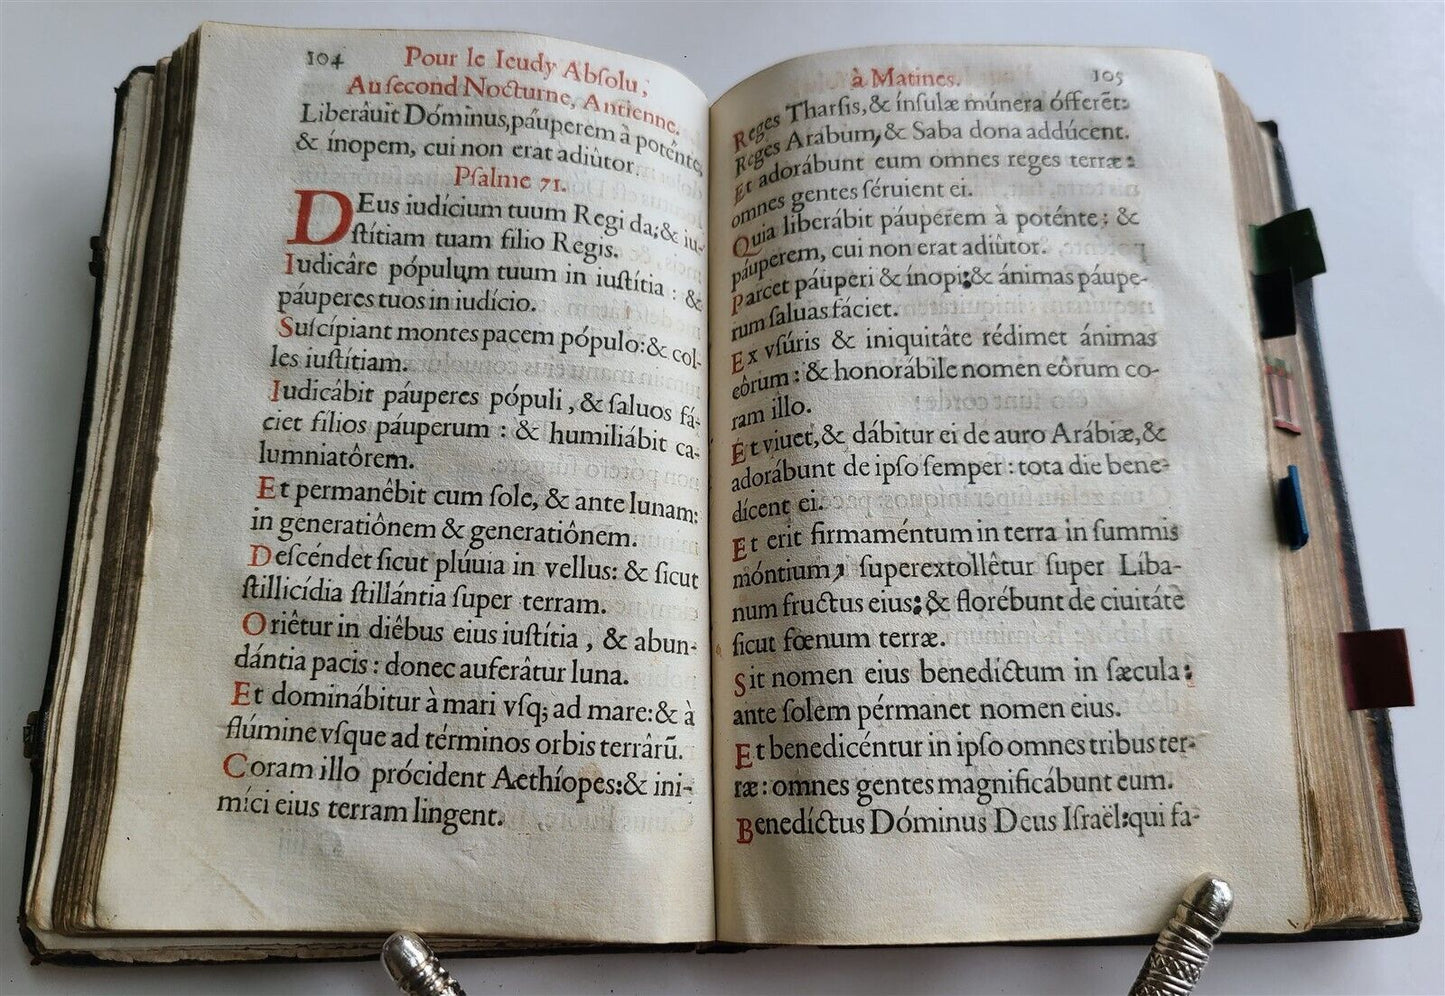 104
Pour le Ieudy Abſolu,
Au ſecond Nocturne, Antienne.
Liberâuit Dóminus, páuperem à poténte,
& ínopem, cui non erat adiûtor.
Pſalme 71.
DEus iudicium tuum Regi da; & iu-
ſtítiam tuam filio Regis.
Iudicâre pópulum tuum in iuſtítia : &
páuperes tuos in iudício.
Suſcípiant montes pacem pópulo: & col-
les iuſtítiam.
Iudicábit páuperes pópuli, & ſaluos fá-
ciet filios páuperum : & humiliábit ca-
lumniatôrem.
Et permanêbit cum ſole, & ante lunam:
in generatiônem & generatiônem.
Deſcéndet ſicut plúuia in vellus: & ſicut
ſtillicídia ſtillántia ſuper terram.
Oriêtur in diêbus eius iuſtítia, & abun-
dántia pacis : donec auferâtur luna.
Et dominábitur à mari vſq; ad mare: & à
flúmine vſque ad términos orbis terrârū.
Coram illo prócident Aethíopes: & ini-
míci eius terram lingent.
à Matines.
105
Reges Tharſis, & ínſulæ múnera óffe
rēt:
Reges Arabum, & Saba dona addúcent.
Et adorábunt eum omnes reges terræ:
omnes gentes ſéruient ei.
Quia liberábit páuperem à poténte: &
páuperem, cui non erat adiûtor.
Parcet páuperi & ínopi: & ánimas páupe-
rum ſaluas fáciet.
Ex vſúris & iniquitâte rédimet ánimas
eôrum : & honorábile nomen eôrum co-
ram illo.
Et viuet, & dábitur ei de auro Arábiæ, &
adorábunt de ipſo ſemper : tota die bene-
dícent ei.
Et erit firmaméntum in terra in ſummis
móntium, ſuperextollêtur ſuper Líba-
num fructus eius: & florébunt de ciuitáte
ſicut fœnum terræ.
Sit nomen eius benedíctum in ſæcula:
ante ſolem pérmanet nomen eius.
Et benedicéntur in ipſo omnes tribus ter-
ræ: omnes gentes magnificábunt eum.
Benedíctus Dóminus Deus Iſraël: qui fa-